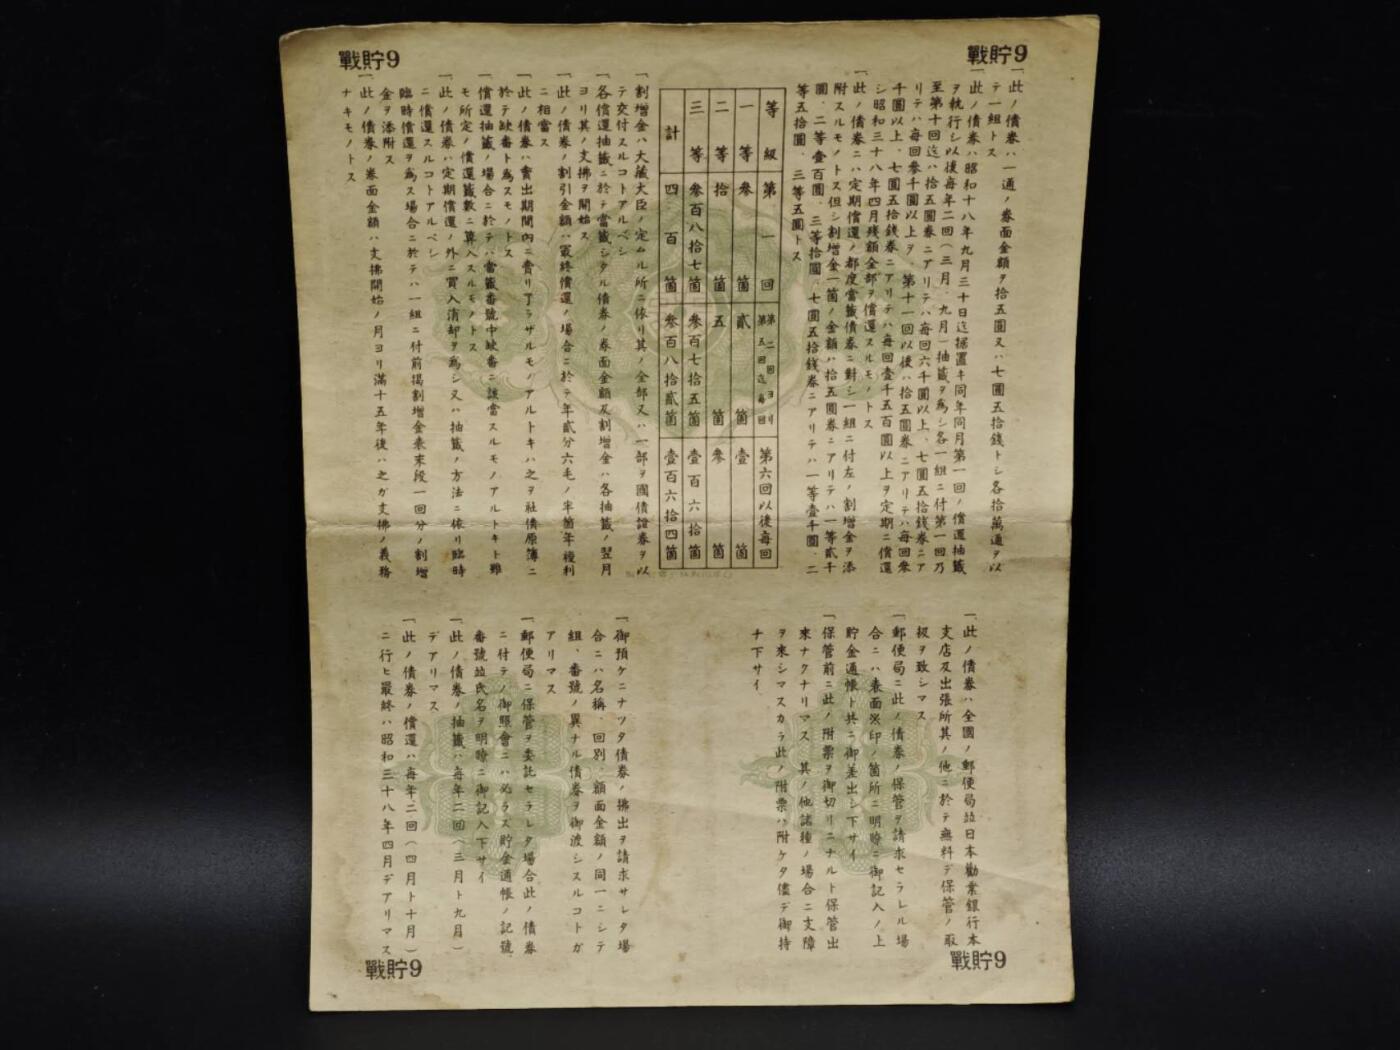 戰貯9
戰貯9
一此ノ債券ハ一通ノ券面金額ヲ拾五圓又ハ七圓五拾錢トシ各拾萬通ヲ以
テ一組トス
一此ノ債券ハ昭和十八年九月三十日迄据置キ同年同月第一回ノ償還抽籤
ヲ執行シ以後每年二回(三月、九月)抽籤ヲ爲シ各一組ニ付第一回乃
至第十回迄ハ拾五圓券ニアリテハ每回六千圓以上、七圓五拾錢券ニア
リテハ每回參千圓以上ヲ、第十一回以後ハ拾五圓券ニアリテハ每回參
千圓以上、七圓五拾錢券ニアリテハ每回壹千五百圓以上ヲ定期ニ償還
シ昭和三十八年四月殘額全部ヲ償還スルモノトス
一此ノ債券ニハ定期償還ノ都度當籤債券ニ對シ一組ニ付左ノ割增金ヲ添
附スルモノトス但シ割增金一箇ノ金額ハ拾五圓券ニアリテハ一等貳千
圓、二等壹百圓、三等拾圓、七圓五拾錢券ニアリテハ一等壹千圓、二
等五拾圓、三等五圓トス
等級 第一回 第二回ヨリ第五回迄每回 第六回以後每回
一等 參箇 貳箇 壹箇
二等 拾箇 五箇 參箇
三等 參百八拾七箇 參百七拾五箇 壹百六拾箇
計 四百箇 參百八拾貳箇 壹百六拾四箇
一割增金ハ大藏大臣ノ定ムル所ニ依リ其ノ全部又ハ一部ヲ國債證券ヲ以
テ交付スルコトアルベシ
一各償還抽籤ニ於テ當籤シタル債券ノ券面金額及割增金ハ各抽籤ノ翌月
ヨリ其ノ支拂ヲ開始ス
一此ノ債券ノ割引金額ハ最終償還ノ場合ニ於テ年貳分六毛ノ半箇年複利
ニ相當ス
一此ノ債券ハ賣出期間內ニ賣リ了ラザルモノアルトキハ之ヲ社債原簿ニ
於テ缺番ト爲スモノトス
一償還抽籤ノ場合ニ於テハ當籤番號中缺番ニ該當スルモノアルトキト雖
モ所定ノ償還籤數ニ算入スルモノトス
一此ノ債券ハ定期償還ノ外ニ買入消却ヲ爲シ又ハ抽籤ノ方法ニ依リ臨時
ニ償還スルコトアルベシ
臨時償還ヲ爲ス場合ニ於テハ一組ニ付前揭割增金表末段一回分ノ割增
金ヲ添附ス
一此ノ債券ノ券面金額ハ支拂開始ノ月ヨリ滿十五年後ハ之ガ支拂ノ義務
ナキモノトス
一此ノ債券ハ全國ノ郵便局竝日本勸業銀行本
支店及出張所其ノ他ニ於テ無料デ保管ノ取
扱ヲ致シマス
一郵便局ニ此ノ債券ノ保管ヲ請求セラレル場
合ニハ表面※印ノ箇所ニ明瞭ニ御記入ノ上
貯金通帳ト共ニ御差出シ下サイ
一保管前ニ此ノ附票ヲ御切リニナルト保管出
來ナクナリマス 其ノ他諸種ノ場合ニ支障
ヲ來シマスカラ此ノ附票ハ附ケタ儘デ御持
チ下サイ
一御預ケニナツタ債券ノ拂出ヲ請求サレタ場
合ニハ名稱、回別、額面金額ノ同一ニシテ
組、番號ノ異ナル債券ヲ御渡シスルコトガ
アリマス
一郵便局ニ保管ヲ委託セラレタ場合此ノ債券
ニ付テノ御照會ニハ必ラス貯金通帳ノ記號
番號竝氏名ヲ明瞭ニ御記入下サイ
一此ノ債券ノ抽籤ハ每年二回(三月ト九月)
デアリマス
一此ノ債券ノ償還ハ每年二回(四月ト十月)
ニ行ヒ最終ハ昭和三十八年四月デアリマス
戰貯9
戰貯9